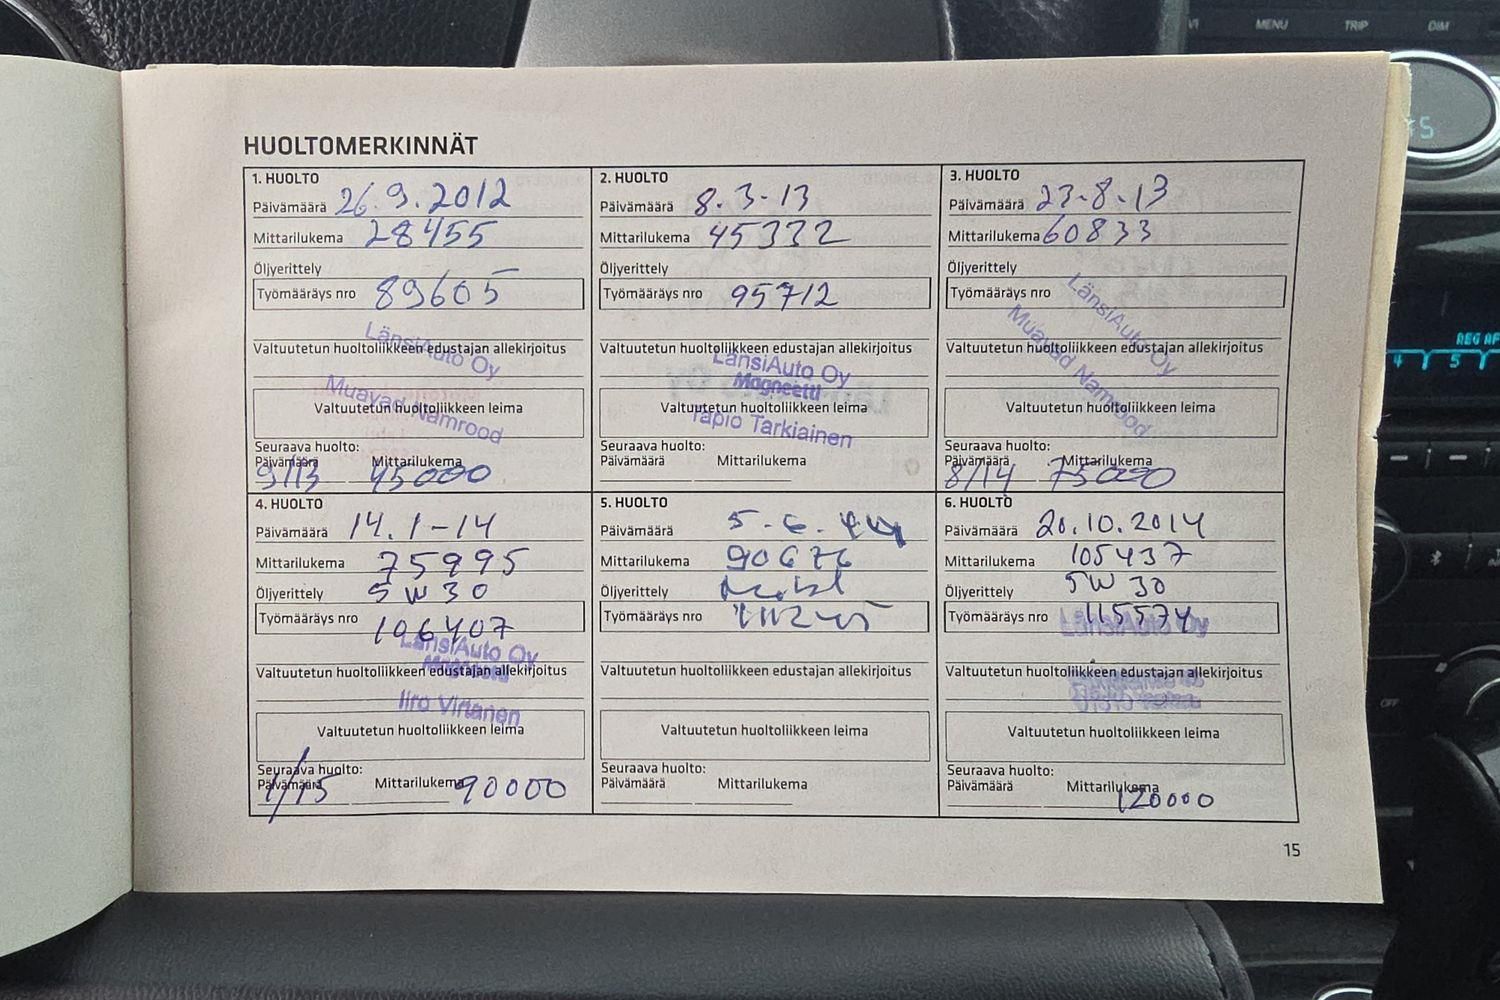 MENU TRIP DIM
HUOLTOMERKINNÄT
1. HUOLTO
Päivämäärä 26.9.2012
Mittarilukema 28455
Öljyerittely
Työmääräys nro 89605
LänsiAuto Oy
Valtuutetun huoltoliikkeen edustajan allekirjoitus
Muayad Namrood
Valtuutetun huoltoliikkeen leima
Seuraava huolto:
Päivämäärä Mittarilukema
9/13 45000
2. HUOLTO
Päivämäärä 8.3-13
Mittarilukema 45332
Öljyerittely
Työmääräys nro 95712
Valtuutetun huoltoliikkeen edustajan allekirjoitus
LänsiAuto Oy
Magneetti
Valtuutetun huoltoliikkeen leima
Tapio Tarkiainen
Seuraava huolto:
Päivämäärä Mittarilukema
3. HUOLTO
Päivämäärä 23-8.13
Mittarilukema 60833
Öljyerittely
Työmääräys nro
LänsiAuto Oy
Muayad Namrood
Valtuutetun huoltoliikkeen edustajan allekirjoitus
Valtuutetun huoltoliikkeen leima
Seuraava huolto:
Päivämäärä Mittarilukema
8/14 75000
4. HUOLTO
Päivämäärä 14.1-14
Mittarilukema 75995
Öljyerittely 5W30
Työmääräys nro 106407
LänsiAuto Oy
Valtuutetun huoltoliikkeen edustajan allekirjoitus
Iiro Virtanen
Valtuutetun huoltoliikkeen leima
Seuraava huolto:
Päivämäärä Mittarilukema
1/15 90000
5. HUOLTO
Päivämäärä 5.6.
Mittarilukema 90676
Öljyerittely
Työmääräys nro
Valtuutetun huoltoliikkeen edustajan allekirjoitus
Valtuutetun huoltoliikkeen leima
Seuraava huolto:
Päivämäärä Mittarilukema
6. HUOLTO
Päivämäärä 20.10.2014
Mittarilukema 105437
Öljyerittely 5W30
Työmääräys nro 115574
LänsiAuto Oy
Valtuutetun huoltoliikkeen edustajan allekirjoitus
Valtuutetun huoltoliikkeen leima
Seuraava huolto:
Päivämäärä Mittarilukema
120000
15
4 5
OFF